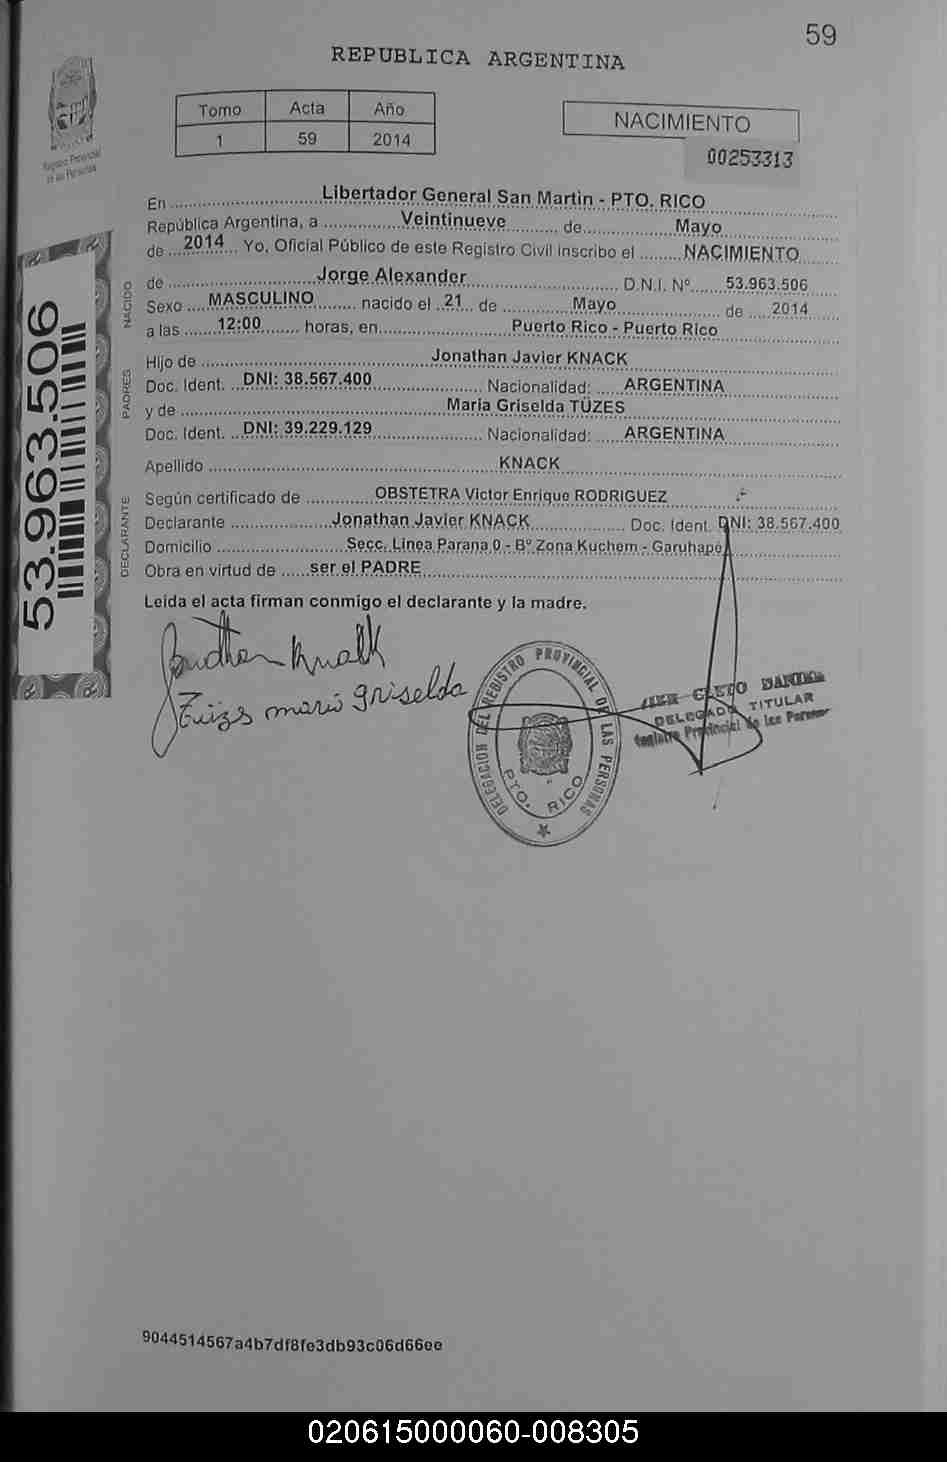 59
REPUBLICA ARGENTINA
Tomo Acta Año
1 59 2014
NACIMIENTO
00253313
Registro Provincial
de las Personas
53.963.506
NACIDO
PADRES
DECLARANTE
En ........ Libertador General San Martin - PTO. RICO
República Argentina, a ........ Veintinueve ........ de ........ Mayo
de ... 2014 ... Yo. Oficial Público de este Registro Civil inscribo el ........ NACIMIENTO
de ........ Jorge Alexander ........ D.N.I. Nº ...... 53.963.506
Sexo .... MASCULINO ........ nacido el .. 21 ... de ........ Mayo ........ de ..... 2014
a las ...... 12:00 ........ horas, en ........ Puerto Rico - Puerto Rico
Hijo de ........ Jonathan Javier KNACK
Doc. Ident. .. DNI: 38.567.400 ........ Nacionalidad: ..... ARGENTINA
y de ........ Maria Griselda TÜZES
Doc. Ident. .. DNI: 39.229.129 ........ Nacionalidad: ..... ARGENTINA
Apellido ........ KNACK
Según certificado de ........ OBSTETRA Victor Enrique RODRIGUEZ
Declarante ........ Jonathan Javier KNACK ........ Doc. Ident. DNI: 38.567.400
Domicilio ........ Secc. Linea Parana 0 - Bº Zona Kuchem - Garuhapé
Obra en virtud de ..... ser el PADRE
Leida el acta firman conmigo el declarante y la madre.
Jonathan Knack
Tuizes maria griselda
DELEGACION DEL REGISTRO PROVINCIAL DE LAS PERSONAS
PTO. RICO
CLETO
DELEGADO TITULAR
Registro Provincial de las Personas
9044514567a4b7df8fe3db93c06d66ee
020615000060-008305